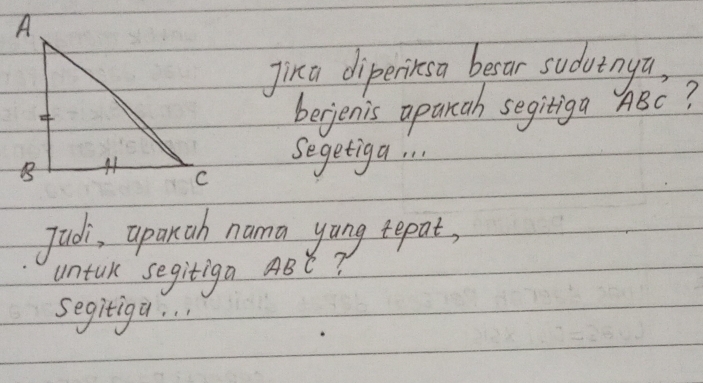 A
B
C
Jika diperiksa besar sudutnya,
berjenis apakah segitiga ABC ?
Segetiga ...
Jadi, apakah nama yang tepat,
untuk segitiga ABC ?
Segitiga ...